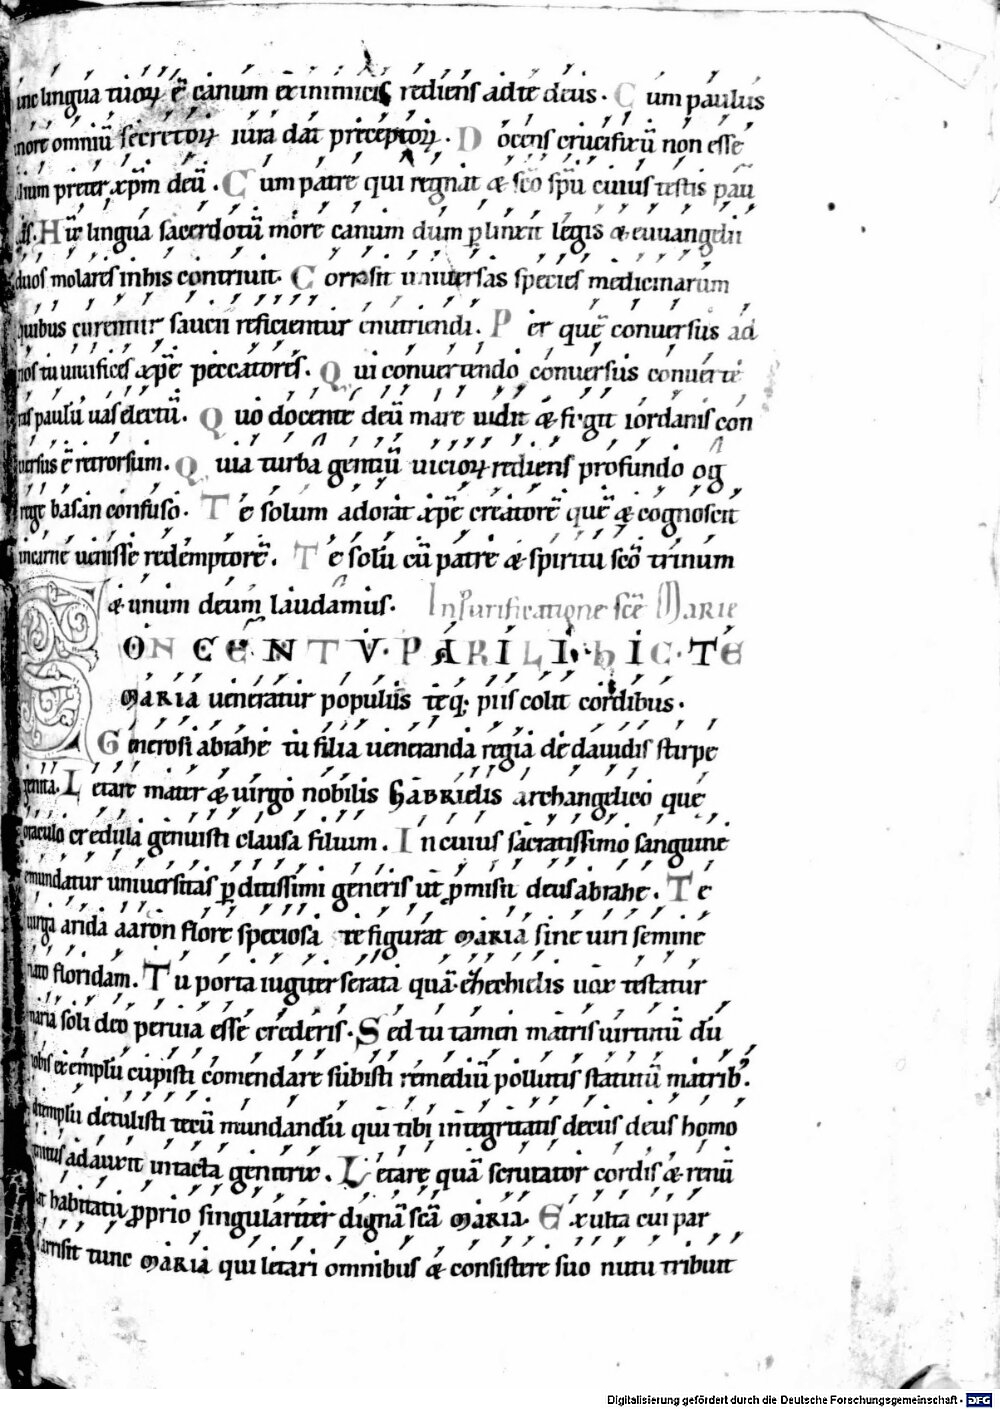 lingua tuoꝝ ē canum ex inimicis rediens ad te deus. Cum paulus
more omniū secretoꝝ iura dat preceptoꝝ. Docens crucifixū non esse
alium preter xp̄m deū. Cum patre qui regnat & sc̄o sp̄u cuius testis pau
lus. Hic lingua sacerdotū more canum dum ꝑlinxit legis & euuangelii
duos molares in his contriuit. Corrosit uniuersas species medicinarum
quibus curentur saucii reficientur enutriendi. Per quē conuersus ad
nos tu uiuifices xp̄e peccatores. Qui conuertendo conuersus conuerte
ras paulū uas electū. Quo docente deū mare uidit & fugit iordanis con
uersus ē retrorsum. Quia turba gentiū uicioꝝ rediens profundo og
rege basan confuso. Te solum adorat xp̄e creatorē quē & cognoscit
in carne uenisse redemptorē. Te solū cū patre & spiritu sc̄o trinum
& unum deum laudamus. In Purificatione sc̄e Marie
CONCENTV PARILI HIC TE
MARIA ueneratur populus teq; piis colit cordibus.
Generosi abrahe tu filia ueneranda regia de dauidis stirpe
genita. Letare mater & uirgo nobilis GABRIELIS archangelico que
oraculo credula genuisti clausa filium. In cuius sacratissimo sanguine
emundatur uniuersitas ꝑditissimi generis ut ꝓmisit deus abrahe. Te
uirga arida aaron flore speciosa te figurat MARIA sine uiri semine
nato floridam. Tu porta iugiter serata quā ezechielis uox testatur
maria soli deo peruia esse crederis. Sed tu tamen matris uirtutū dū
nobis exemplū cupisti comendare subisti remediū pollutis statutū matrib'.
ad templū detulisti tecū mundandū qui tibi integritatis decus deus homo
genitus adauxit intacta genitrix. Letare quā scrutator cordis & renū
probat habitatū ꝓprio singulariter dignā sc̄a MARIA. Exulta cui par
uus arrisit tunc MARIA qui letari omnibus & consistere suo nutu tribuit
Digitalisierung gefördert durch die Deutsche Forschungsgemeinschaft - DFG